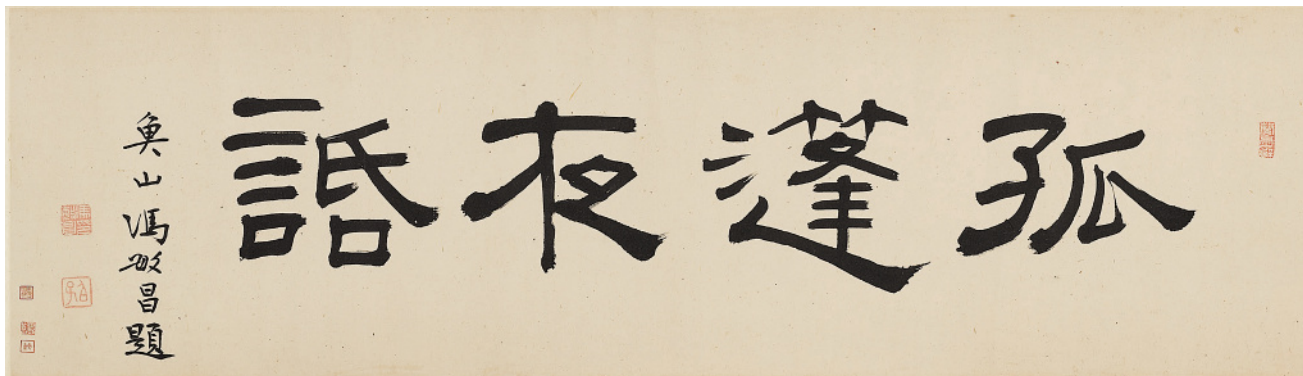 孤蓬夜話
魚山馮敏昌題